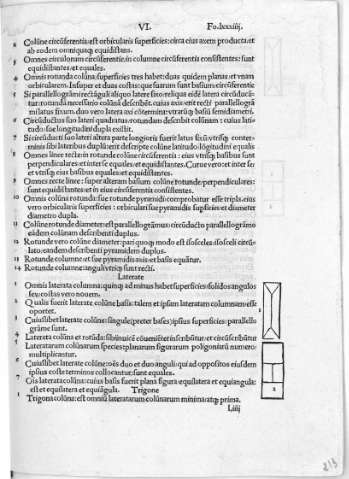 VI. Fo.lxxiiij.
Colūne circūferentia: est orbicularis superficies: circa eius axem producta. et
ab eodem omniquaque equidistans.
Omnes circulorum circūferentie, in columne circūferentia consistentes: sunt
equidistantes. et equales.
Omnis rotunda colūna: superficies tres habet: duas quidem planas: et vnam
orbicularem. Insuper et duas costas: que suarum sunt basium circūferentie
Si parallelogrāmi rectāguli
latus fixum. duo vero latera
Circūductus suo lateri quadratus: rotundam describit colūnam: cuius lati-
tudo sue longitudini dupla exsistit.
Si circūducti suo lateri altera parte longioris fuerit latus fixū
minis sibi lateribus duplū: erit descripte colūne latitudo lōgitudini equalis
Omnes linee recte in rotunde colūne circūferentia: eius basibus sunt
perpendiculares: et inter se equales et equidistantes. Curue vero et inter se
et basibus equales et equidistantes.
Omnes recte linee: super alteram basium colūne rotunde: perpendiculares:
sunt equidistantes: et in eius circūferentia consistentes.
Omnis colūna rotunda: sue rotunde pyramidi comprobatur esse tripla. eius
vero orbicularis superficies: orbiculari sue pyramidis superficiei et diameter
diametro dupla.
Colūne rotunde diameter: est parallelogrāmus: circūducto parallelogrāmo
eādem colūnam describenti duplus.
Rotunde vero colūne diameter: pari quoque modo est isosceles: isosceli circū-
lato: eandem describenti pyramidem duplus.
Rotunde columne: et sue pyramidis axis et basis equātur.
Rotunde columne: anguli sunt recti.
Laterate
Omnis laterata columna: quinque ad minus habet superficies: solidos angulos
sex: costas vero nouem.
Qualis fuerit laterate colūne basis: talem et ipsam lateratam columnam: esse
oportet.
Cuiuslibet laterate colūne: singule (preter bases) ipsius superficies: parallelo
grāme sunt.
Laterata colūna et rotūda: sibi et circūscribūtur
Lateratarum colūnarum species: planarum figurarum poligoniarū numero:
multiplicantur.
Cuiuslibet laterate colūne: oēs duo et duo anguli: qui ad oppositos eiusdem
ipsius coste terminos collocantur: sunt equales.
Ois laterata colūna: cuius basis fuerit plana figura equilatera et equiangula:
est et equilatera et equiāgula. Trigone
Trigona colūna: est omniū lateratarum colūnarum minima: atque prima.